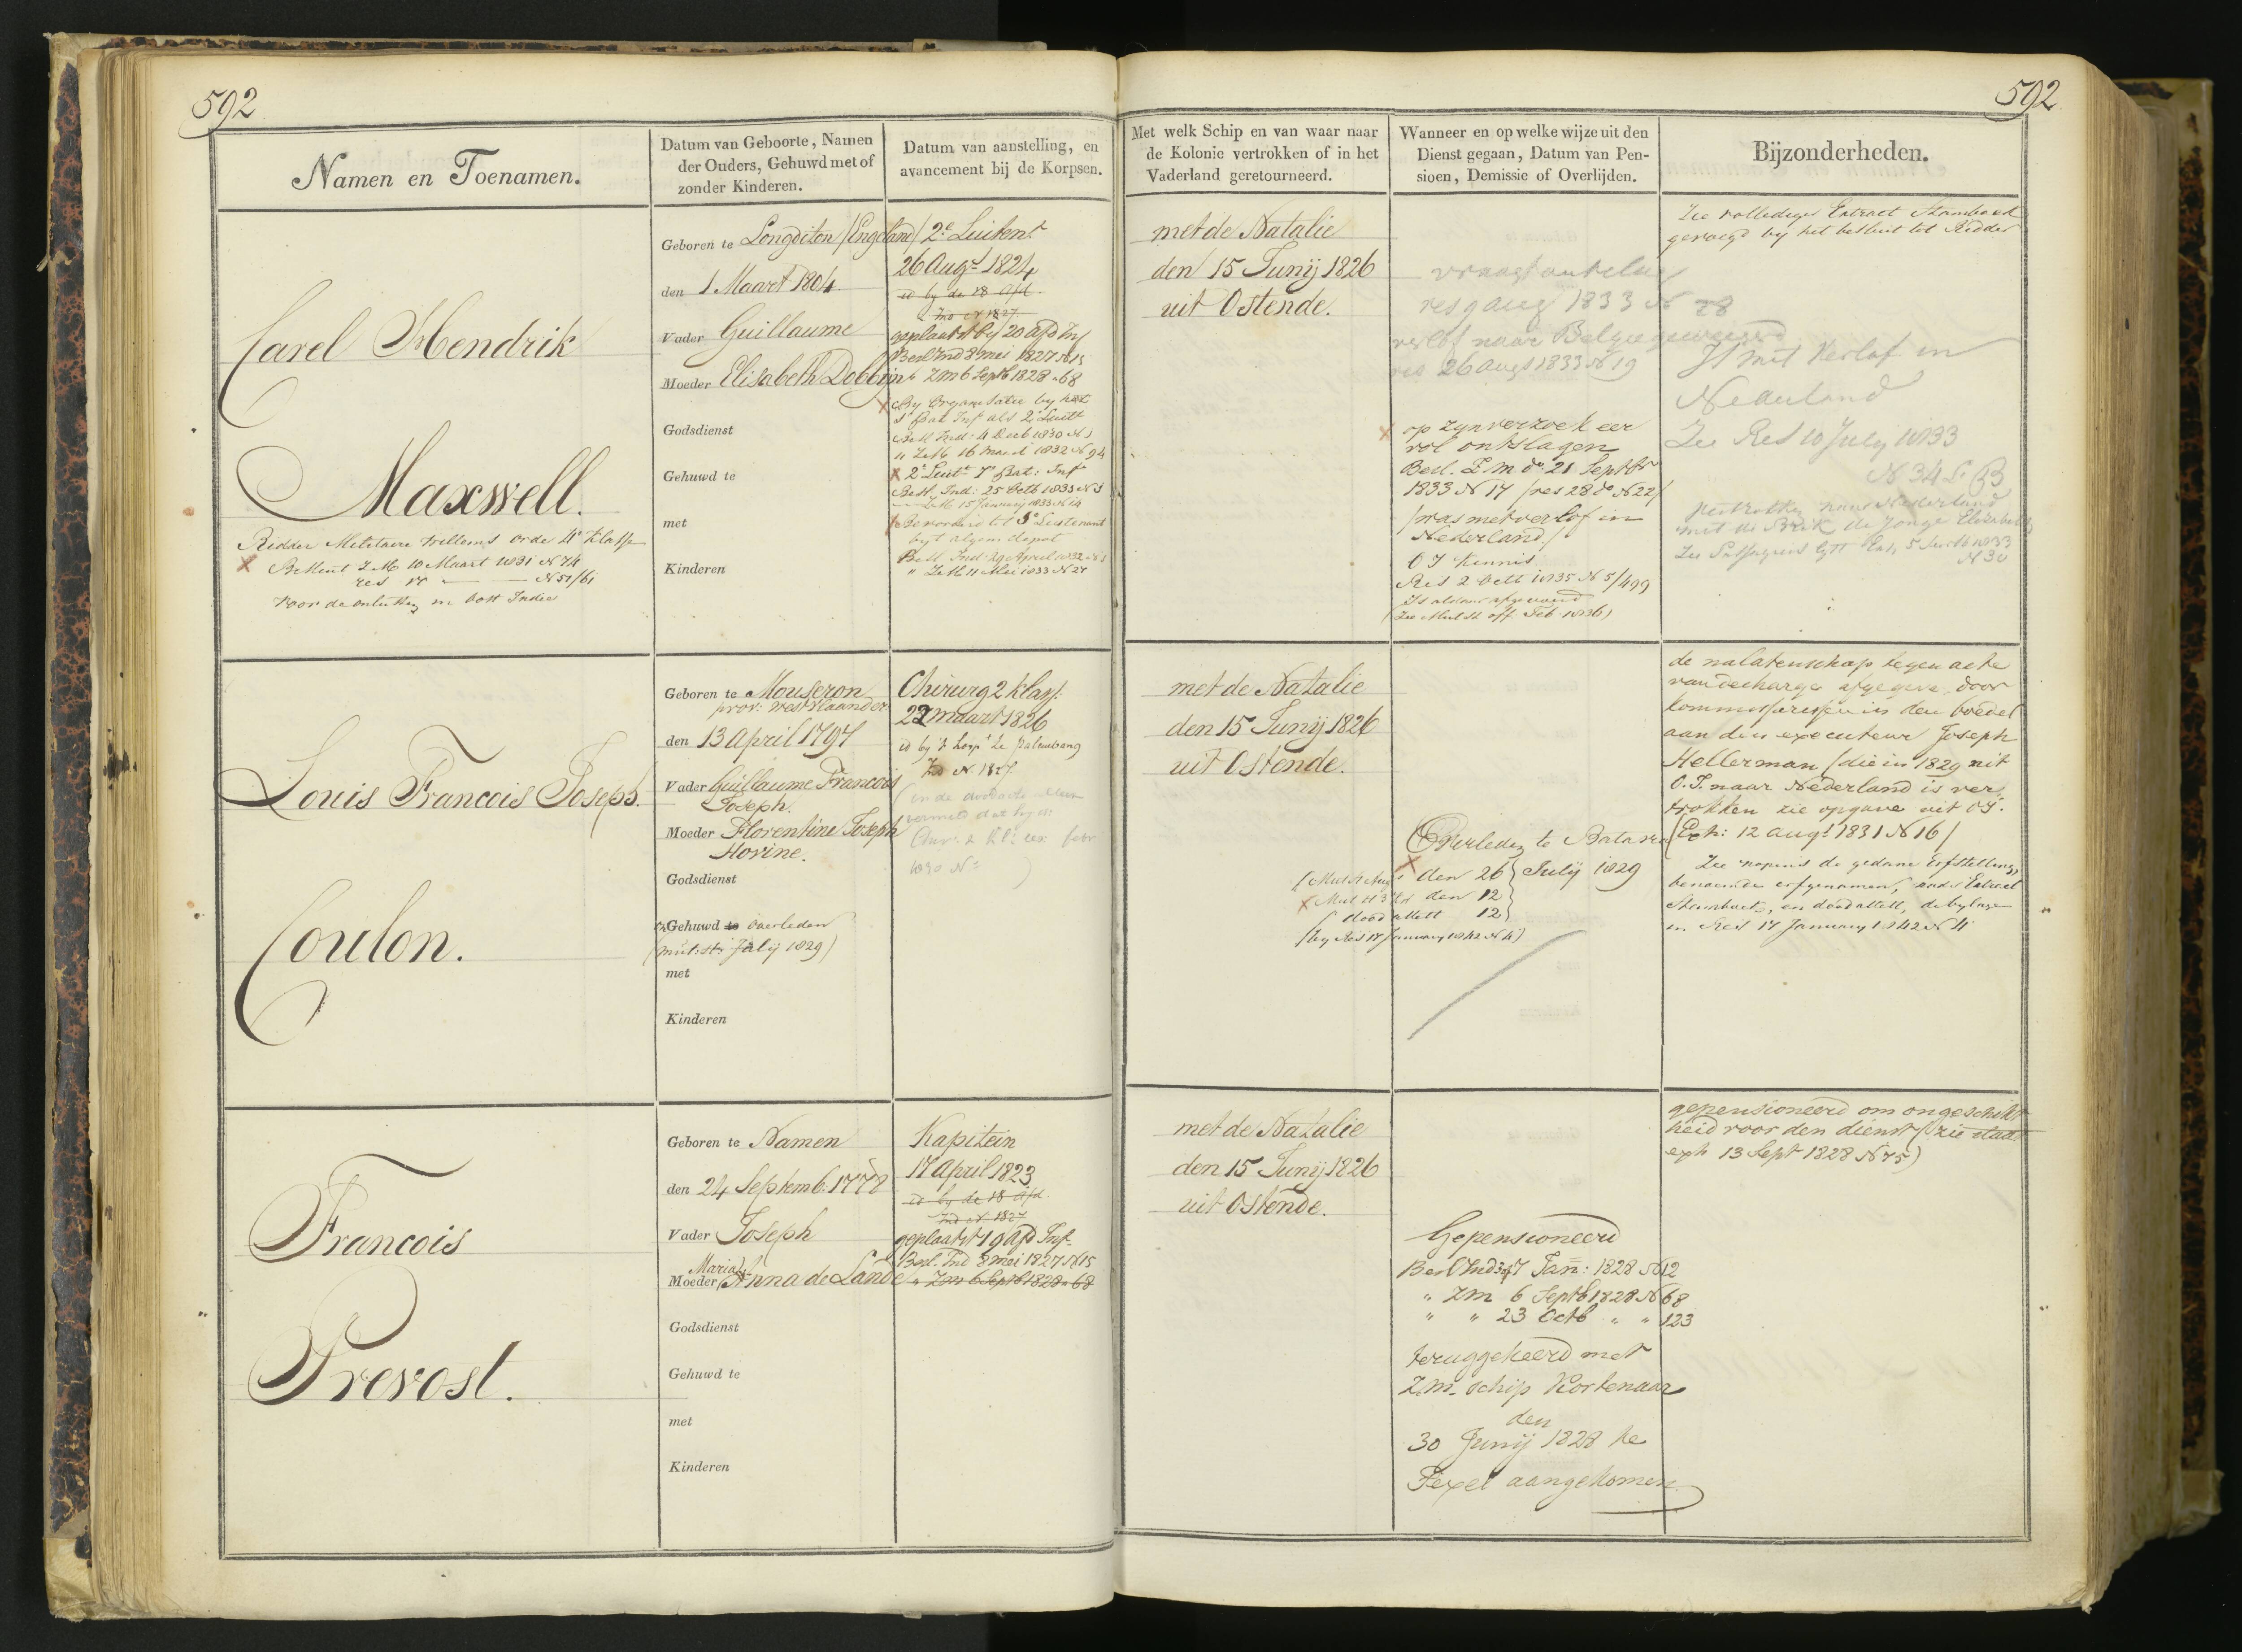 592
592
Namen en Toenamen.
Datum van Geboorte, Namen
der Ouders, Gehuwd met of
zonder Kinderen.
Datum van aanstelling, en
avancement bij de Korpsen.
Met welk Schip en van waar naar
de Kolonie vertrokken of in het
Vaderland geretourneerd.
Wanneer en op welke wijze uit den
Dienst gegaan, Datum van Pen-
sioen, Demissie of Overlijden.
Bijzonderheden.
Carel Hendrik
Maxwell.
Ridder Militaire Willems orde 4e Klasse
Besluit Z M 10 Maart 1831 N 74
res 17 — N 51/61
voor de onlusten in Oost Indie
Geboren te Longditon /Engeland/
den 1 Maart 1804
Vader Guillaume
Moeder Elisabeth Dobbin
Godsdienst
Gehuwd te
met
Kinderen
2e Luitent
26 Augt 1824
id by de 18 afd.
Ind 1827
geplaatst by 20 afd Inf
Besl Ind 8 mei 1827 N 15
Z M 6 Septb 1828 " 68
By Organisatie by het
1e Bat Inf als 2e Luitt
Besl Ind: 4 Decb 1830 N 1
" Z M 16 Maart 1832 N 94
2e Luitt 7e Bat: Inf
Besl. Ind: 25 Octb 1833 N 3
Z M 15 January 1833 N 14
Bevorderd tot 1e Luitenant
by t algem depot
Besl Ind 29 April 1832 N 1
" Z M 11 Mei 1833 N 27
met de Natalie
den 15 Junij 1826
uit Ostende.
res 9 aug 1833 N 28
verlof naar Belgie geweigerd
res 26 augs 1833 N 19
op zyn verzoek eer
vol ontslagen
Besl. Z M do: 21 Septbr
1833 N 17 /res 28 do N 22/
/was met verlof in
Nederland./
O I Kennis
Res 2 Octb 1835 N 5/499
Is aldaar afgevoerd
(Zie Mut st off Feb 1836)
Zie volledige Extract Stamboek
gevoegd by het besluit tot Ridder
Is met Verlof in
Nederland
Zie Res 10 July 1833
N 34 L B
vertrokken naar Nederland
met de Brik de jonge Elizabeth
N 30
Louis Francois Joseph
Coulon.
Geboren te Mouseron
prov: West Vlaander
den 13 April 1797
Vader Guillaume Francois
Joseph.
Moeder Florentine Joseph
Horine.
Godsdienst
Gehuwd te overleden
(mut: st: July 1829)
met
Kinderen
Chirurg 2 klass:
22 maart 1826
id by 't Corps te Palembang
Ind N. 1827
met de Natalie
den 15 Junij 1826
uit Ostende.
Overleden te Batavia
(Mut st Aug) den 26 } July 1829
(Mut st 3 den 12 }
( dood attest 12 }
(by Res 17 January 1842 N 4)
de nalatenschap tegen acte
van decharge afgegeven door
kommissarissen in den boedel
aan den executeur Joseph
Hellerman /die in 1829 uit
O.I. naar Nederland is ver
trokken zie opgave uit O I.
/Exh: 12 augt 1831 N 16/
Zie nopens de gedane Erfstelling,
benoemde erfgenamen, nader Extract
Stamboek, en dood attest, de bylage
in Res 17 January 1842 N 4
Francois
Prevost.
Geboren te Namen
den 24 Septemb: 1778
Vader Joseph
Maria
Moeder Anna de Lande
Godsdienst
Gehuwd te
met
Kinderen
Kapitein
17 April 1823
id by de 18 afd.
Ind N. 1827
geplaatst 19 afd Inf.
Besl. Ind 8 mei 1827 N 15
" Z M 6 Septb 1828 " 68
met de Natalie
den 15 Junij 1826
uit Ostende.
Gepensioneerd
Besl Ind 7 Jan: 1828 N 12
" Z M 6 Septb 1828 N 68
" " 23 Octb " " 123
teruggekeerd met
Z.M. schip Kortenaar
den
30 Junij 1828 te
Texel aangekomen.
gepensioneerd om ongeschikt
heid voor den dienst (zie staat
exh 13 Sept 1828 N 75)